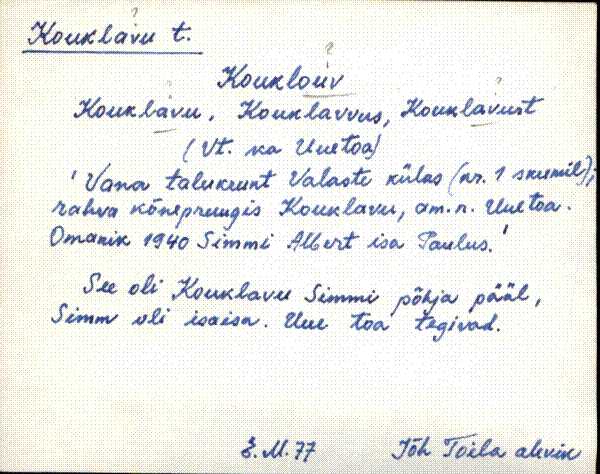 Kouklavu t.
Kouklouv
Kouklavu, Kouklavvus, Kouklavust
(Vt. ka Uuetoa)
'Vana talukrunt Valaste külas (nr. 1 skeemil),
rahva kõnepruugis Kouklavu, am.n. Uuetoa.
Omanik 1940 Simmi Albert isa Paulus.'
See oli Kouklavu Simmi põhja pääl,
Simm oli isaisa. Uue toa tegivad.
E.M. 77 Jõh Toila alevik